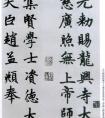 元勅賜龍興寺大
慈廣照無上帝師
集賢學士資德大
夫臣趙孟頫奉